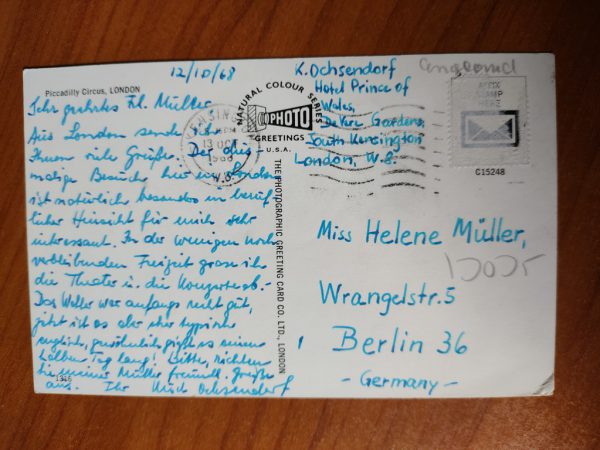 12/10/68
Piccadilly Circus, LONDON
Sehr geehrtes Frl. Müller
Aus London sende ich
Ihnen viele Grüße. Der dies-
malige Besuch hier in London
ist natürlich besonders in beruf-
licher Hinsicht für mich sehr
interessant. In der wenigen noch
verbleibenden Freizeit grase ich
die Theater u. die Konzerte ab. -
Das Wetter war anfangs recht gut,
jetzt ist es aber eher typisch
englisch, gewöhnlich gießt es einen
halben Tag lang! Bitte, richten
Sie meiner Mutter freundl. Grüße
aus. Ihr Ochsendorf
1346
NATURAL COLOUR SERIES
PHOTO
GREETINGS
U.S.A.
THE PHOTOGRAPHIC GREETING CARD CO. LTD., LONDON
13 OCT
1968
W.8
K. Ochsendorf
Hotel Prince of
Wales,
De Vere Gardens,
South Kensington
London, W.8.
England
STAMP
HERE
C15248
Miss Helene Müller,
Wrangelstr. 5
Berlin 36
- Germany -